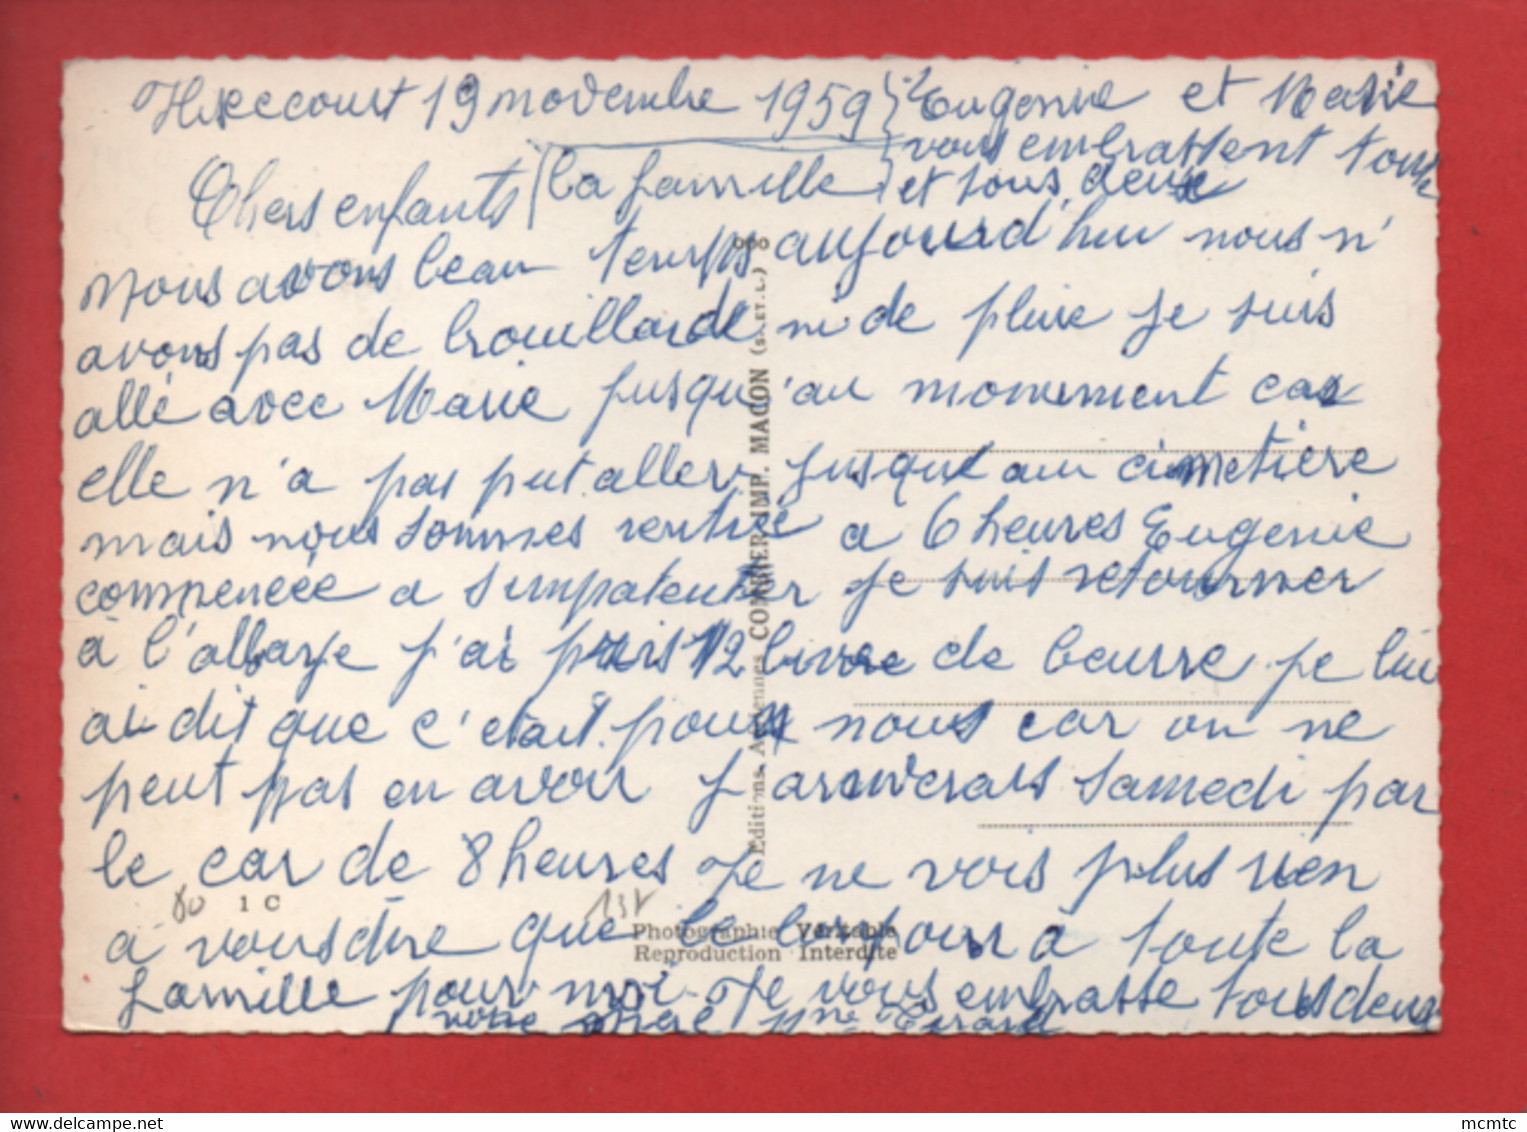 19 novembre 1959 Eugenie et Marie
vous embrassent toute
la famille et tous deux
Chers enfants
Nous avons beau temps aujourd'hui nous n'
avons pas de brouillard ni de pluie je suis
allé avec Marie jusqu'au monument car
elle n'a pas put aller jusque au cimetière
mais nous sommes rentrée a 6 heures Eugenie
commencée a s'impatenter je suis retourner
à l'abbaye j'ai pris 1/2 livre de beurre je lui
ai dit que c'était pour nous car on ne
peut pas en avoir J'arriverais samedi par
le car de 8 heures Je ne vois plus rien
à vous dire que le bonjour a toute la
famille pour moi Je vous embrasse tous deux
votre mère Mme
Editions Aériennes COMBIER IMP. MACON (S.-ET-L.)
80 1 C
Photographie Véritable
Reproduction Interdite
mcmtc